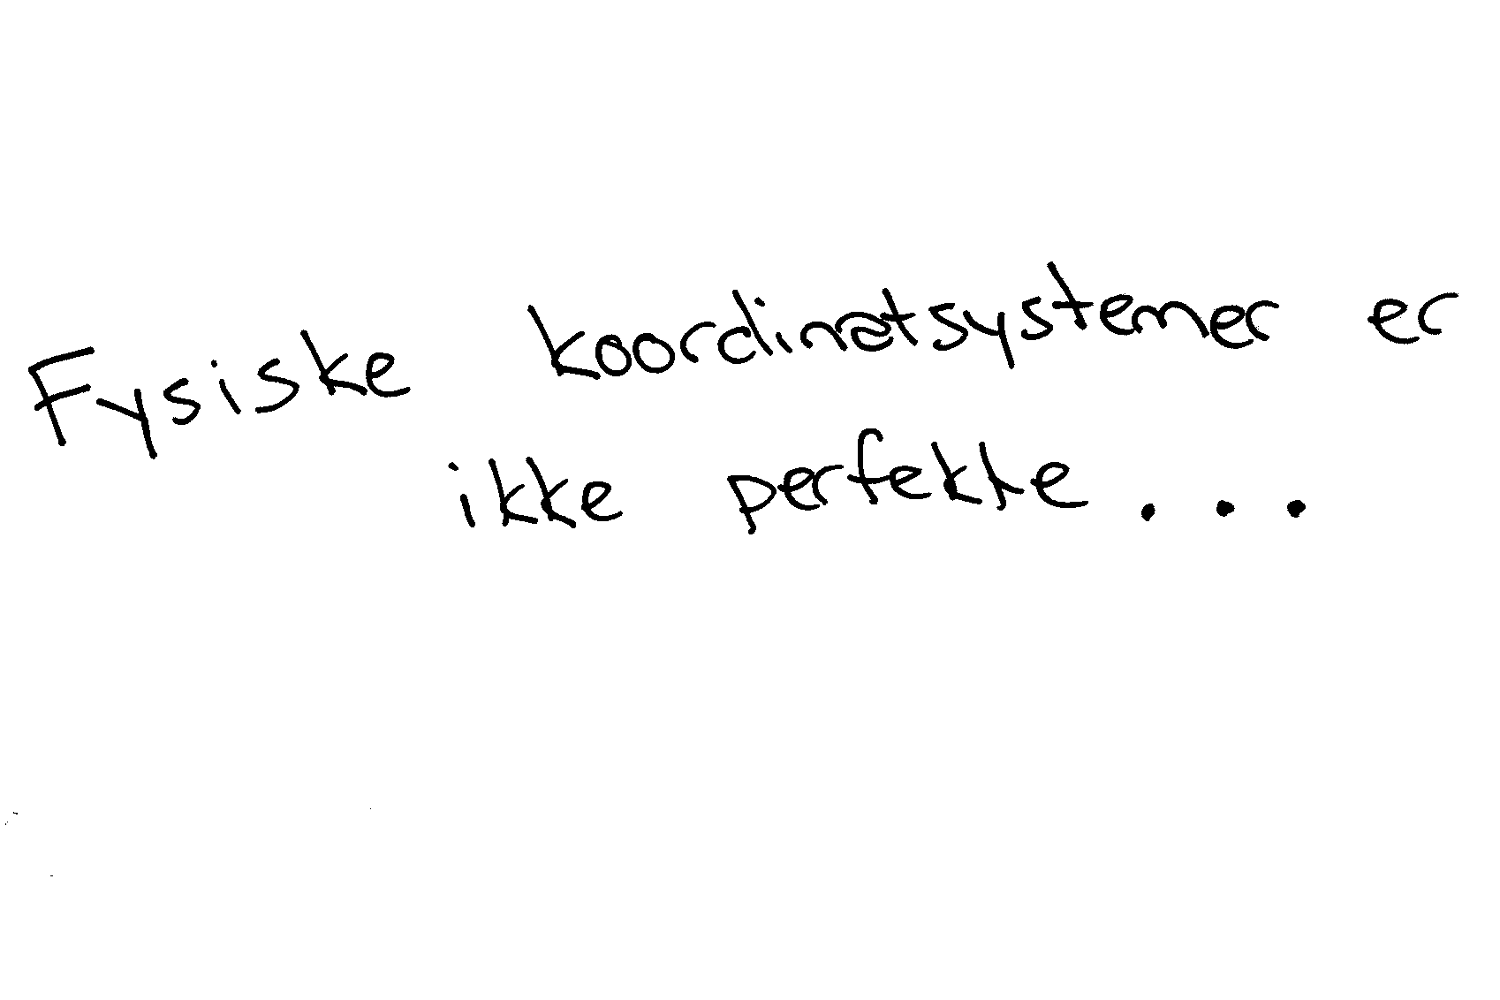 Fysiske koordinatsystemer er
ikke perfekte...